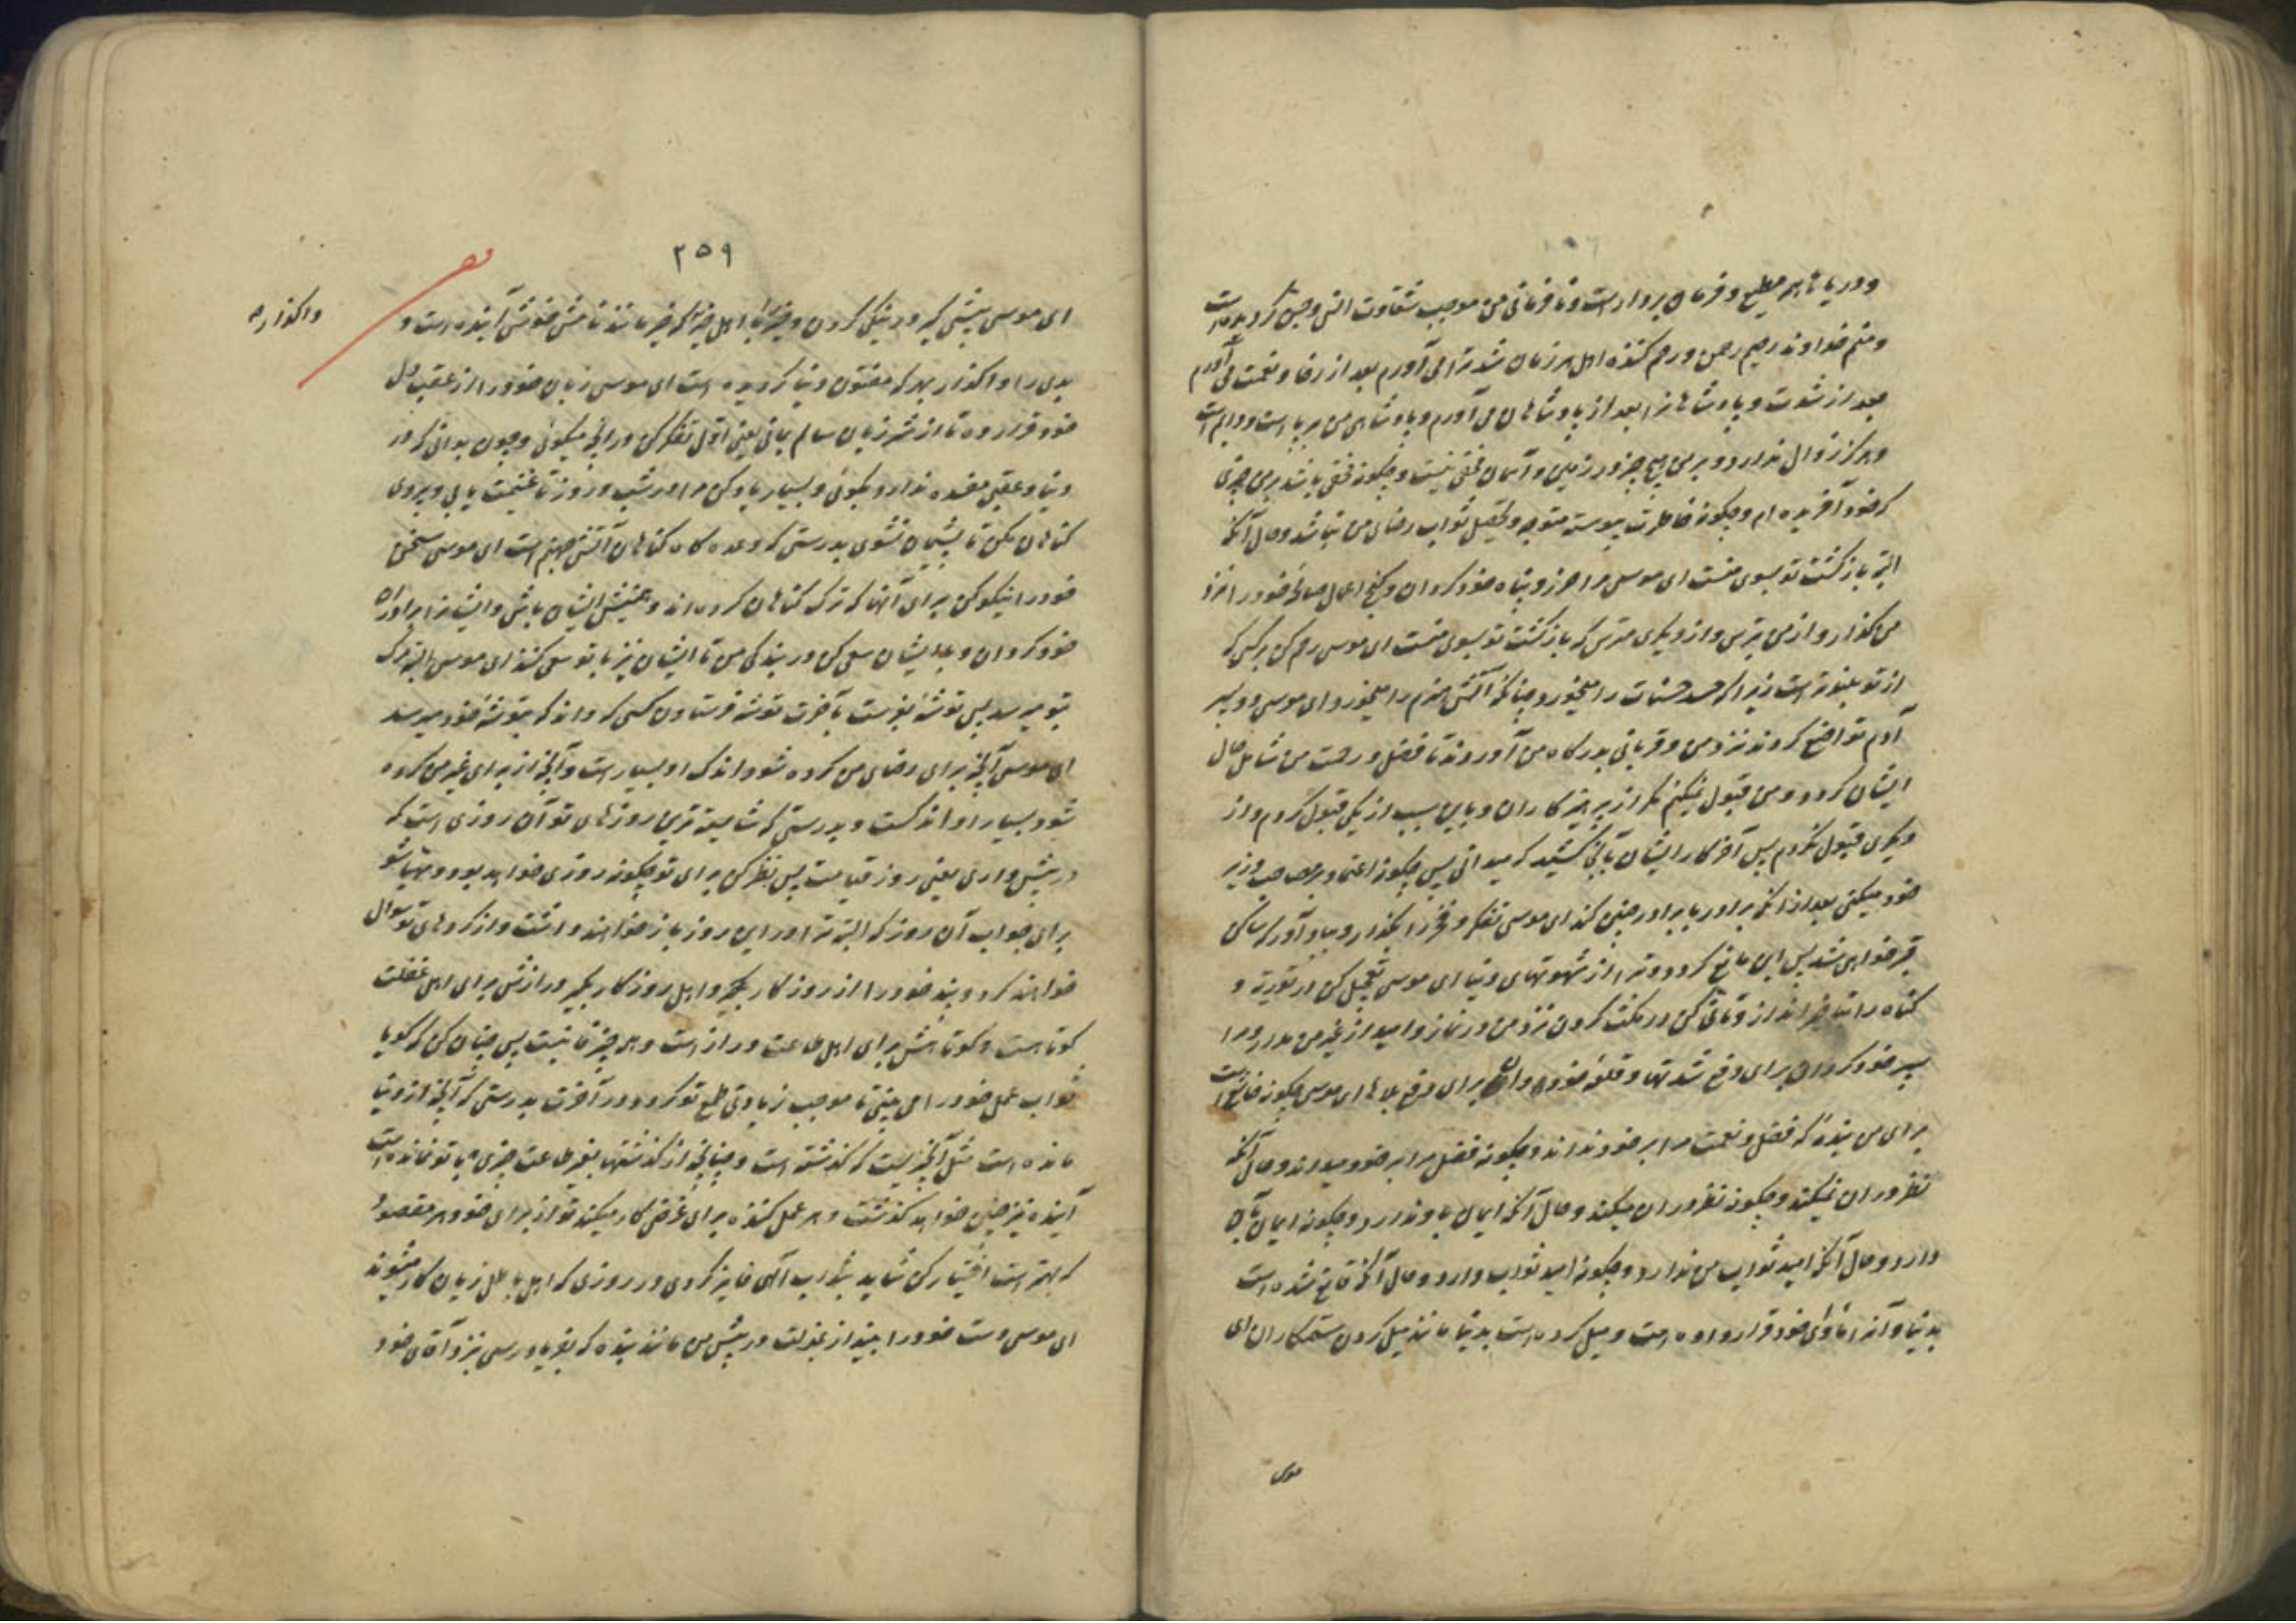 و دریاها همه مطیع و فرمان بردار است و نافرمانی من موجب شقاوت انس و جن گردیده است
و منم خداوند رحیم رحمن و رحم کننده اهل هر زمان شدت را می آورم بعد از رخا و نعمت می آورم
بعد از شدت و پادشاهانرا بعد از پادشاهان می آورم و پادشاهی من برپا است و دایم است
و هرگز زوال ندارد و بر من هیچ چیز در زمین و آسمان مخفی نیست و چگونه مخفی باشد بر من چیزی
که خود آفریده ام و چگونه خاطرت پیوسته متوجه تحصیل ثواب رضای من نباشد و حال آنکه
البته بازگشت تو بسوی منست ای موسی مرا حرز و پناه خود گردان و گنج اعمال صالحه خود را نزد
من گذار و از من بترس و از دیگری مترس که بازگشت تو بسوی منست ای موسی رحم کن بر کسی که
از تو بلندتر است زیرا که حسد حسنات را میخورد چنانکه آتش هیزم را میخورد ای موسی دو پسر
آدم تواضع کردند نزد من و قربانی بدرگاه من آوردند تا فضل و رحمت من شامل حال
ایشان گردد و من قبول نمیکنم مگر از پرهیزکاران و باین سبب از یکی قبول کردم و از
دیگری قبول نکردم پس آخر کار ایشان بآنجا کشید که میدانی پس چگونه اعتماد بر مصاحب و وزیر
خود میکنی بعد از آنکه برادر با برادر چنین کند ای موسی تفکر و فخر را بگذار و بیاد آور که ساکن
قبر خواهی شد پس این مانع گردد ترا از شهوتهای دنیا ای موسی تعجیل کن در توبه و
گناه را بتاخیر انداز و تانی کن در مکث کردن نزد من در نماز و امید از غیر من مدار و مرا
سپر خود گردان برای دفع شدتها و قلعه خود دان برای دفع بلاها ای موسی چگونه خاشع است
برای من بنده که فضل و نعمت مرا بر خود نداند و چگونه فضل مرا بر خود میداند و حال آنکه
نظر در ان نمیکند و چگونه نظر در ان میکند و حال آنکه ایمان باو ندارد و چگونه ایمان بآن
دارد و حال آنکه امید ثواب من ندارد و چگونه امید ثواب دارد و حال آنکه قانع شده است
بدنیا و آنرا ماوای خود قرار داده است و میل کرده است بدنیا مانند میل کردن ستمکاران ای
موسی
۲۵۹
ای موسی پیشی گیر در نیکی کردن و خیر با اهل خیر که خیر مانند نامش خوش آینده است و
واگذار
بدی را واگذار بهر که مفتون دنیا گردیده است ای موسی زبان خود را از عقب دل
خود قرار ده تا از شر زبان سالم بمانی یعنی اول تفکر کن در آنچه میگوئی و چون بدانی که در
دنیا و عقبی مفسده ندارد بگوئی و بسیار یاد کن مرا در شب و روز تا غنیمت یابی و پیروی
گناهان مکن تا پشیمان نشوی بدرستی که وعده گاه گناهان آتش جهنم است ای موسی سخن
خود را نیکو کن برای آنها که ترک گناهان کرده اند و همنشین ایشان باش و ایشانرا برادران
خود گردان و با ایشان سعی کن در بندگی من تا ایشان نیز با تو سعی کنند ای موسی البته مرگ
بتو میرسد پس توشه بفرست بآخرت توشه فرستادن کسی که داند که بتوشه خود میرسد
ای موسی آنچه برای رضای من کرده شود اندک او بسیار است و آنچه از برای غیر من کرده
شود بسیار او اندکست و بدرستی که شایسته ترین روزهای تو آن روزی است که
در پیش داری یعنی روز قیامت پس نظر کن برای تو چگونه روزی خواهد بود و مهیا شو
برای جواب آن روز که البته ترا در این روز باز خواهند داشت و از کردهای تو سوال
خواهند کرد و پند خود را از روزگار بگیر و اهل روزگار بگیر درازش برای اهل غفلت
کوتاهست و کوتاهش برای اهل طاعت دراز است و همه چیز فانیست پس چنان کن که گویا
ثواب عمل خود را می بینی تا موجب زیادتی طمع تو گردد در آخرت بدرستی که آنچه از دنیا
مانده است مثل آنچه ایست که گذشته است و چنانچه از گذشتها بغیر طاعت چیزی با تو نمانده است
آینده نیز چنین خواهد گذشت و هر عمل کننده برای غرضی کار میکند تو از برای خود هر مقصود
که بهتر است اختیار کن شاید بثواب الهی فایز گردی در روزی که اهل باطل زیان کار میشوند
ای موسی دست خود را بینداز بمذلت در پیش من مانند بنده که بفریاد رسی نزد آقای خود